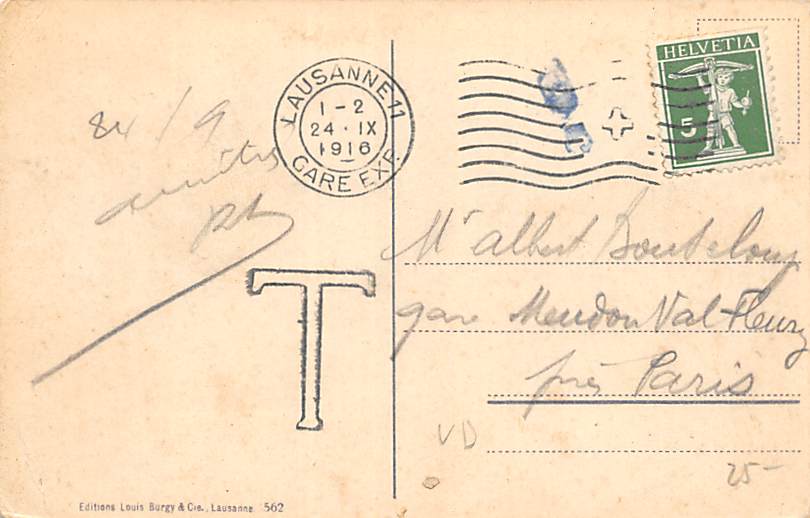 LAUSANNE 11
1-2
24·IX
1916
GARE EXP.
HELVETIA
5
24/9
T
Mr Albert
gare Meudon Val-Fleury
près Paris
VD
25-
Editions Louis Burgy & Cie., Lausanne 562